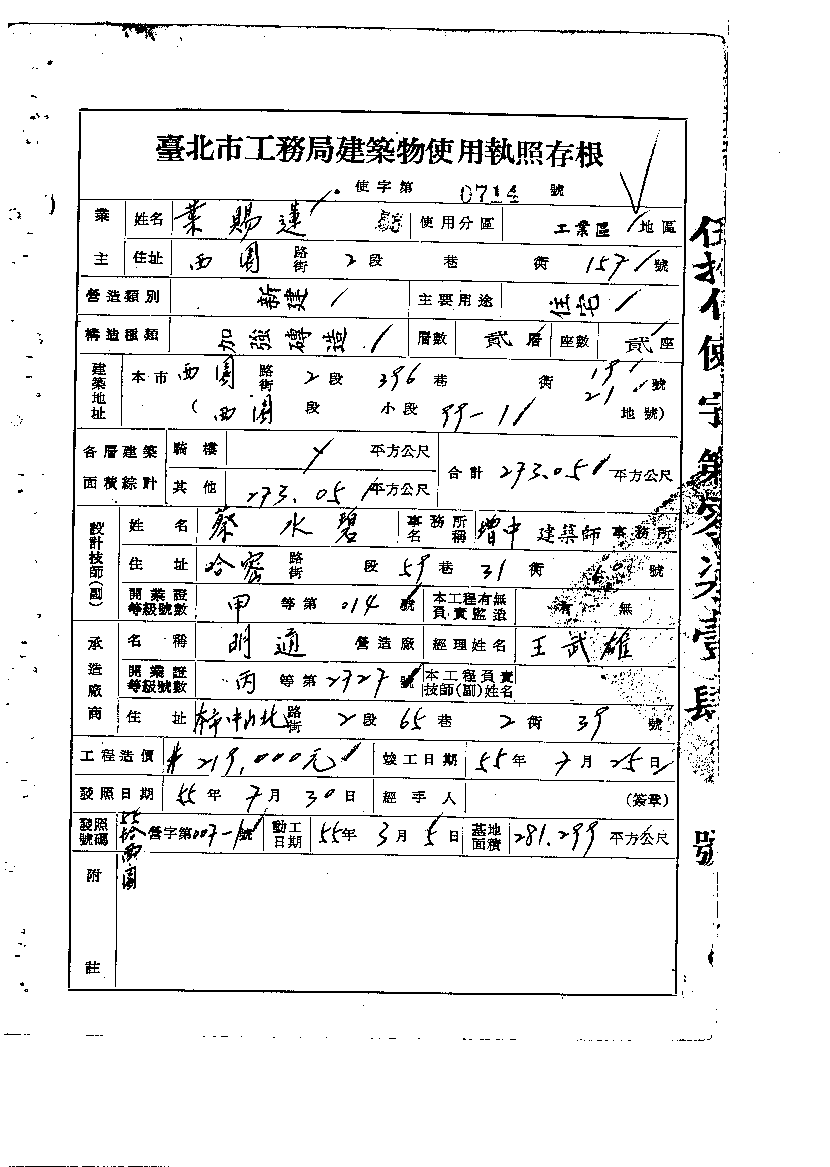 臺北市工務局建築物使用執照存根
使字第 0714 號
業主 姓名 葉賜蓮 使用分區 工業區 地區
住址 西園 路街 2段 巷 衖 157 號
營造類別 新建 主要用途 住宅
構造種類 加強磚造 層數 貳層 座數 貳座
建築地址 本市 西園 路街 2段 396巷 衖 19 21 號
(西園 段 小段 99-11 地號)
各層建築面積綜計 騎樓 平方公尺 合計 273.05 平方公尺
其他 273.05 平方公尺
設計技師(副) 姓名 蔡水碧 事務所名稱 增中 建築師事務所
住址 哈密 路街 段 59巷 31衖 號
開業證等級號數 甲等第 014 號 本工程有無負責監造 有 無
承造廠商 名稱 明通 營造廠 經理姓名 王武雄
開業證等級號數 丙等第 2727 號 本工程負責技師(副)姓名
住址 本市中山北 路街 2段 65巷 2衖 39 號
工程造價 #219,000元 竣工日期 55年 7月 25日
發照日期 55年 7月 30日 經手人 (簽章)
發照號碼 55 營字第007-1號 動工日期 55年 3月 5日 基地面積 281.299 平方公尺
西園
附註
伍拾伍使字第零柒壹肆號